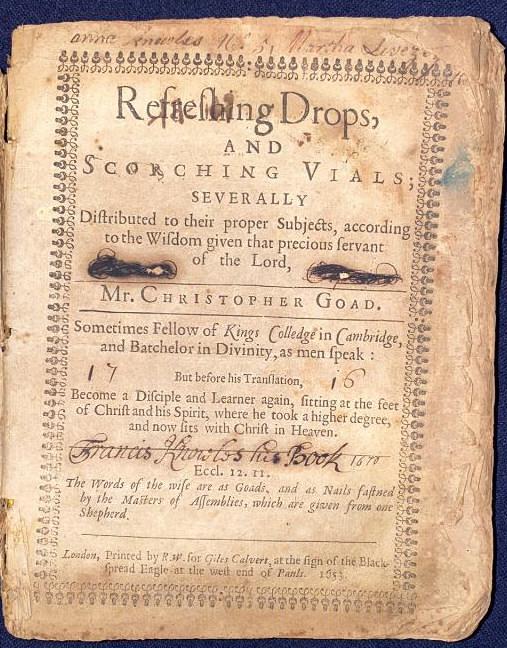 anne Knowles
Refreſhing Drops,
AND
SCORCHING VIALS;
SEVERALLY
Diſtributed to their proper Subjects, according
to the Wiſdom given that precious ſervant
of the Lord,
Mr. CHRISTOPHER GOAD.
Sometimes Fellow of Kings Colledge in Cambridge,
and Batchelor in Divinity, as men ſpeak :
17 But before his Tranſlation, 16
Become a Diſciple and Learner again, ſitting at the feet
of Chriſt and his Spirit, where he took a higher degree,
and now ſits with Chriſt in Heaven.
Francis Knowls his Book
Eccl. 12. 11.
The Words of the wiſe are as Goads, and as Nails faſtned
by the Maſters of Aſſemblies, which are given from one
Shepherd.
London, Printed by R.W. for Giles Calvert, at the ſign of the Black-
ſpread Eagle at the weſt end of Pauls. 1653.